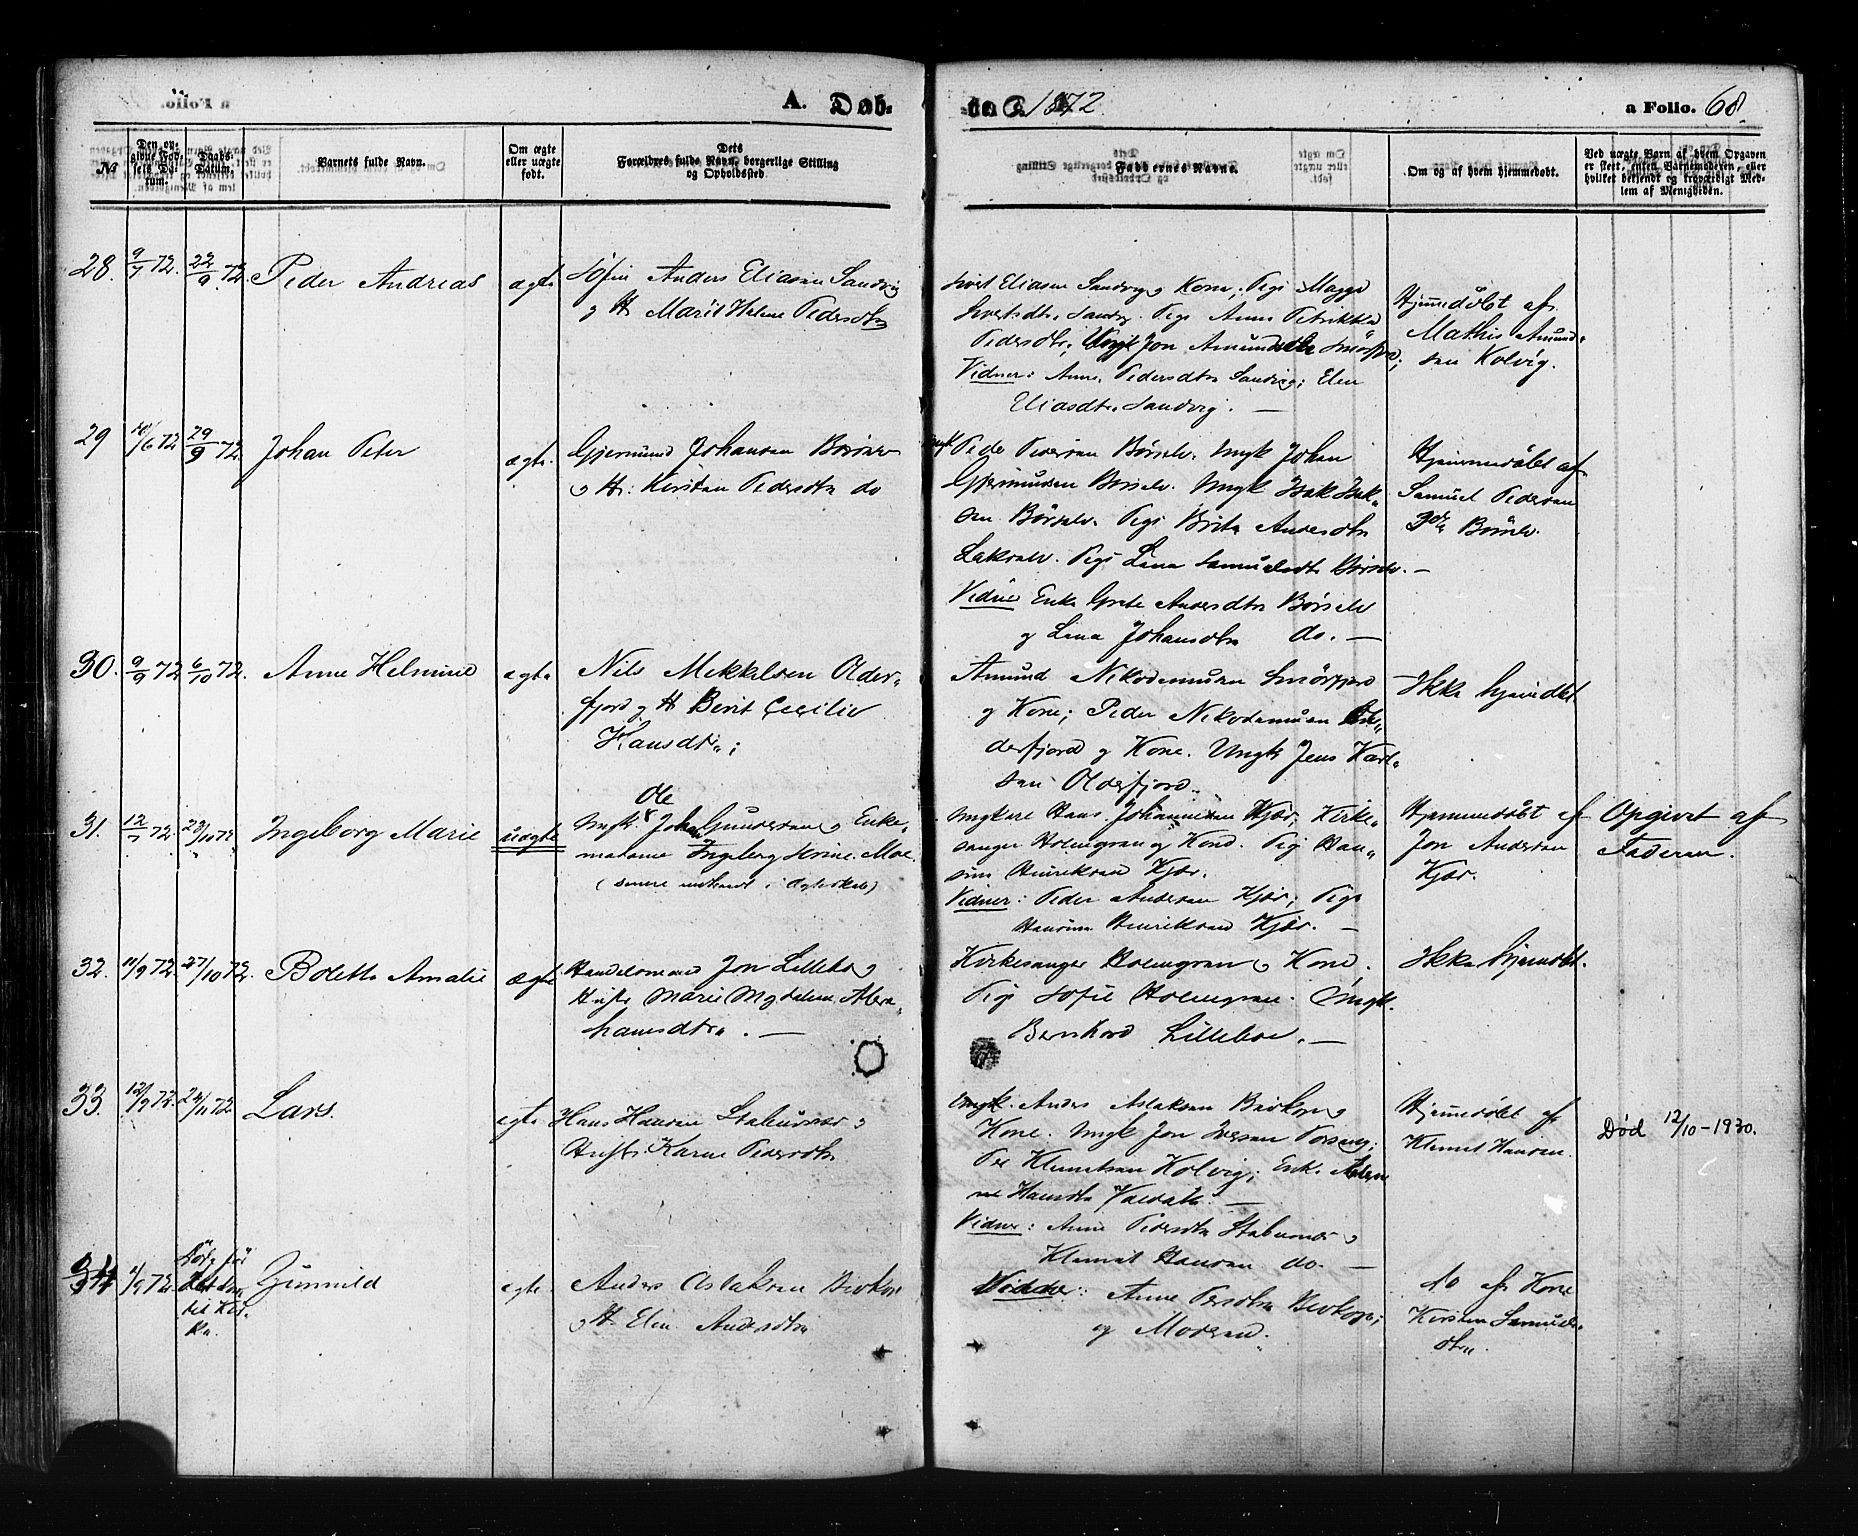 A. Døb-
te. 1872.
a Folio. 68.
№
Den opgivne Fødsels Datum.
Daabs-Datum.
Barnets fulde Navn.
Om ægte eller uægte født.
Dets Forældres fulde Navn, borgerlige Stilling og Opholdssted.
Faddernes Navne.
Om og af hvem hjemmedøbt.
Ved uægte Barn af hvem Opgaven er skeet, enten Barnemoderen, eller hvilket bekjendt og troværdigt Medlem af Menigheden.
28. 9/7 72. 22/9 72. Peder Andreas ægte
Anders Eliasen Sandvig
og H. Marit Helene Pedersdtr
Eliasen Sandvig og Kone; Pige Magga
Sivertsdtr. Sandvig. Pige Anne
Pedersdtr; Ungk Jon Amundsen Smörfjord;
Vidner: Anne Pedersdtr Sandvig; Elen
Eliasdtr. Sandvig. —
Hjemmedøbt af
Mathis Amund-
sen Kolvig.
29 /6 72 29/9 72. Johan Peter ægte.
Gjermund Johansen Børselv
og H: Kirsten Pedersdtr do
Ungk Peder Pedersen Børselv. Ungk Johan
Gjermundsen Børselv. Ungk Isak Isak-
sen Børselv. Pige Brita Andersdtr
Lakselv. Pige Lena Samuelsdtr Børselv. —
Vidner Enke Grete Andersdtr Børselv
og Lena Johansdtr do. —
Hjemmedøbt af
Samuel Pedersen
Børselv.
30. 9/9 72 6/10 72. Anne Helmine ægte
Nils Mikkelsen Older-
fjord og H Berit Cecilie
Hansdtr.;
Amund Nikodemusen Smörfjord
og Kone; Peder Nikodemusen Ol-
derfjord og Kone. Ungk Jens Karl-
sen Olderfjord.
Ikke hjemdbt
31. 12/7 72. 23/10 72. Ingeborg Marie uægte
Ole
Ungk. Johan Gundersen og Enke-
madame Ingeborg Moe.
(senere indtraadt i Ægteskab)
Ungkare Hans Johannesen Kjær, Kirke-
sanger Holmgren og Kone. Pige Han-
sine Henriksen Kjær.
Vidner: Peder Andersen Kjær; Pige
Hansine Henriksen Kjær. —
Hjemmedøbt af
Jon Andersen
Kjær.
Opgivet af
Faderen.
32. 11/9 72. 27/10 72. Bolette Amalie ægte
Handelsmand Jon Lilleboe og
Hustr Marie Magdalena Abra-
hamsdtr. —
Kirkesanger Holmgren og Kone,
Pige Sofie Holmgren. Ungk.
Bernhard Lilleboe. —
Ikke hjemdbt.
33. 12/9 72. 24/11 72 Lars. ægte
Hans Hansen Stabursnæs og
Hustr Karen Pedersdtr
Ungk. Anders Aslaksen og
Kone. Ungk Jon Iversen
Per Klemetsen Kolvig; Enke
Hansdtr —
Vidner: Anne Pedersdtr Stabursnæs og
Klemet Hansen do. —
Hjemmedøbt af
Klemet Hansen.
Død 12/10-1930.
34 /9 72. Død før
det kom
til Kir-
ke.
Gunnild ægte.
Anders Aslaksen
og H. Elen Andersdtr
Vidner: Anne Persdtr
og Moderen.
do af Kone
Kirsten Samuels-
dtr.